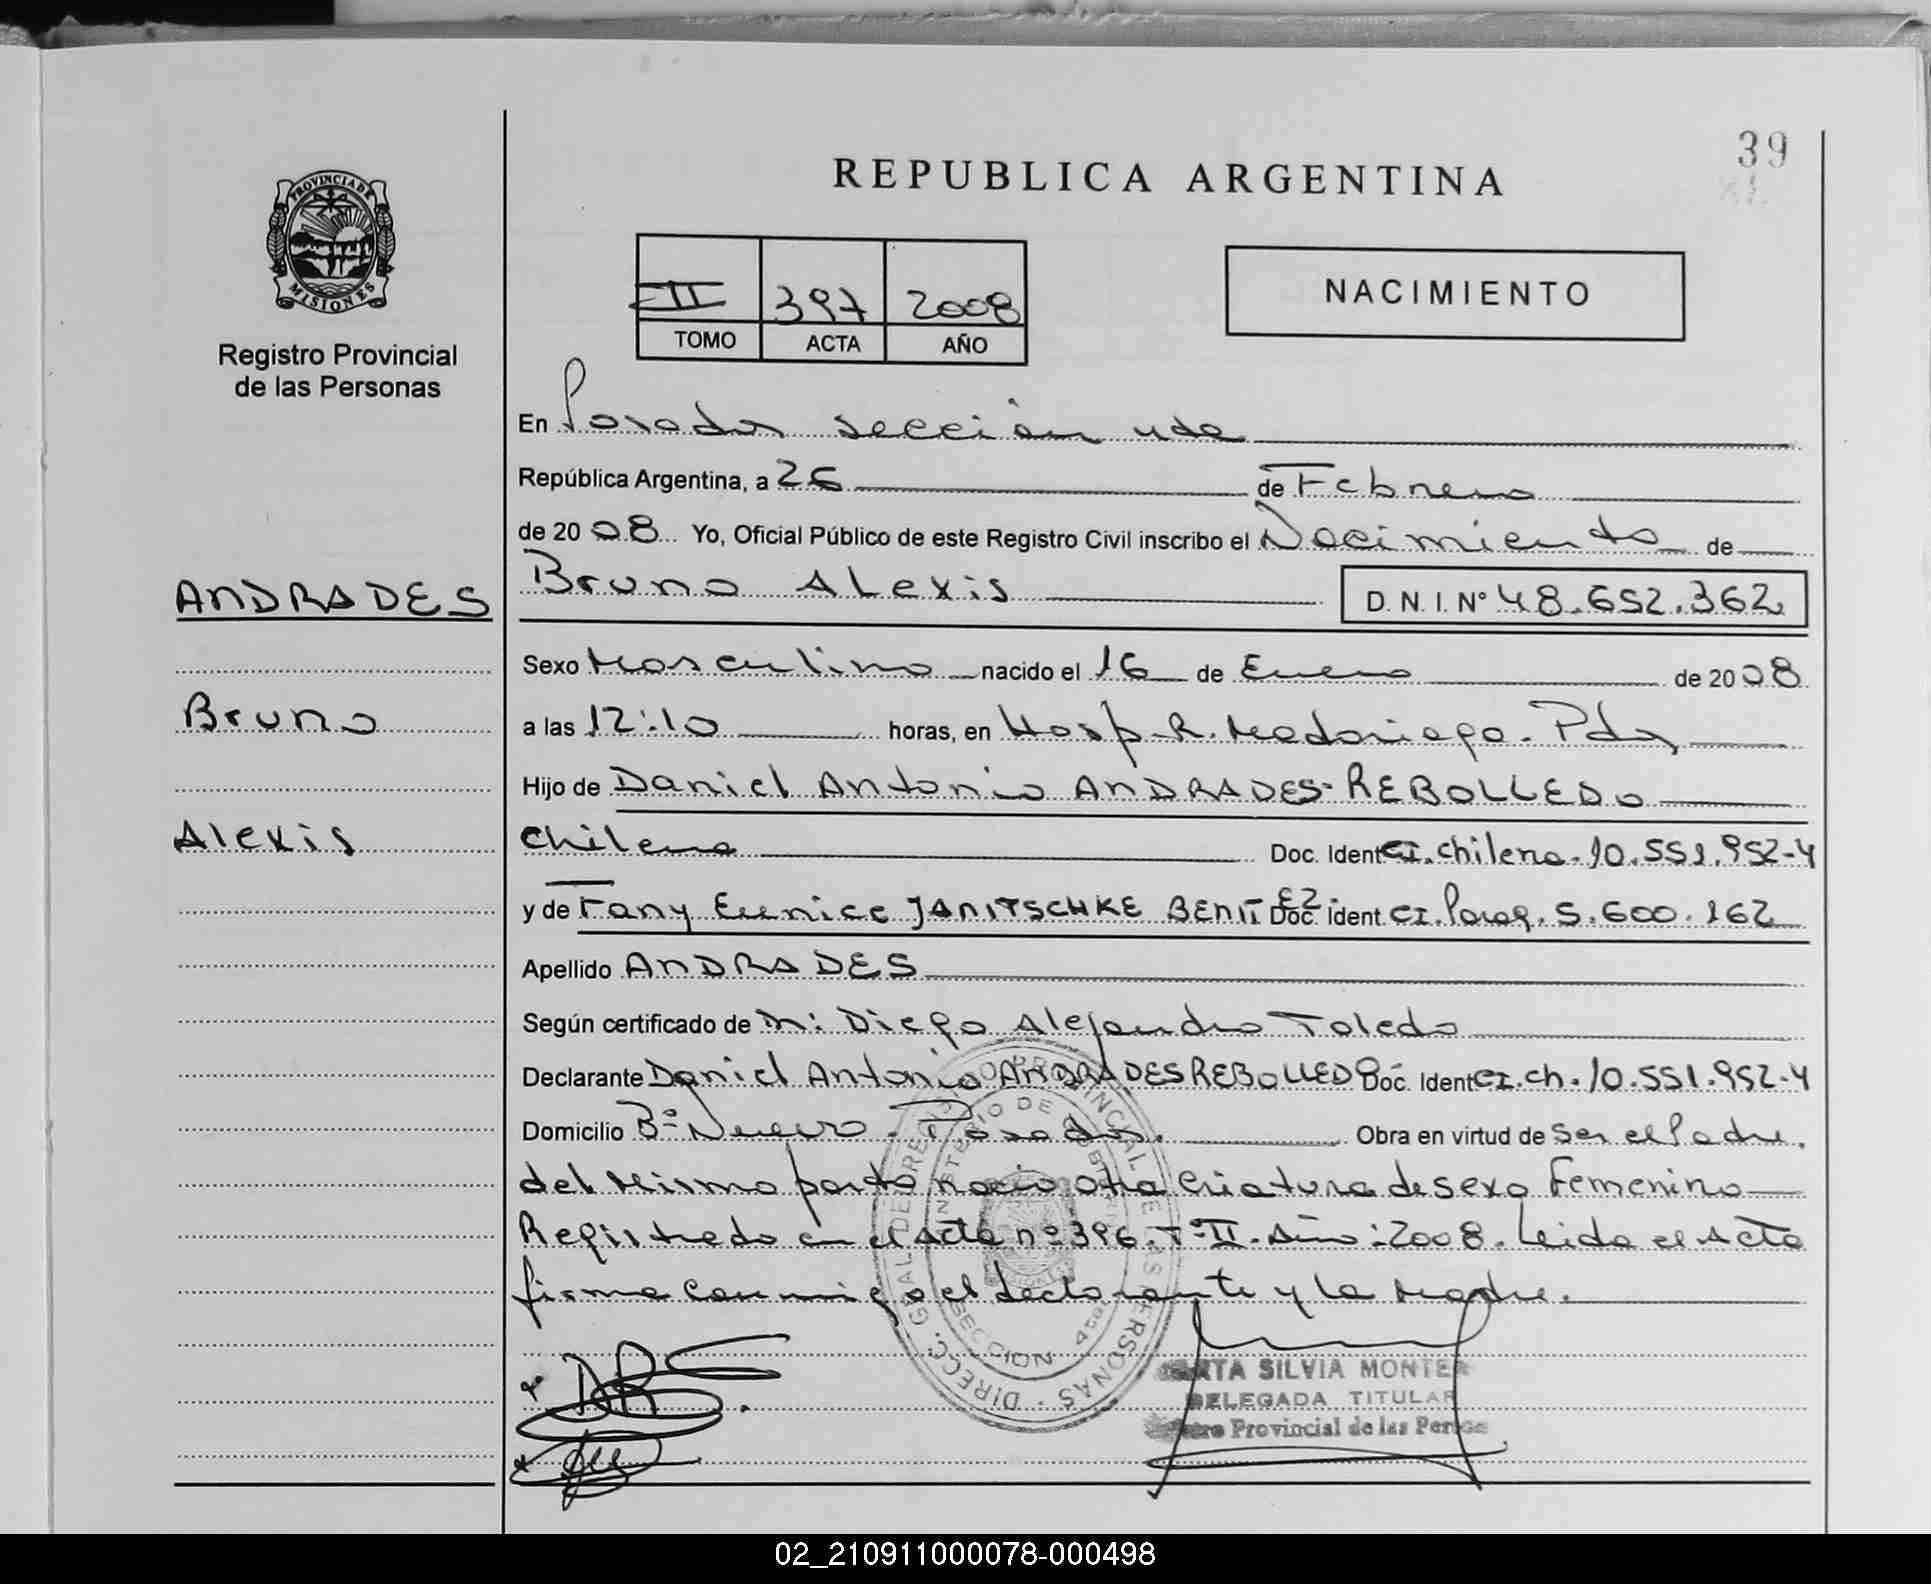 39
REPUBLICA ARGENTINA
PROVINCIA DE
MISIONES
Registro Provincial
de las Personas
II 397 2008
TOMO ACTA AÑO
NACIMIENTO
En Posadas sección 4ta
República Argentina, a 26 de Febrero
de 2008 Yo, Oficial Público de este Registro Civil inscribo el Nacimiento de
ANDRADES Bruno Alexis D.N.I.Nº 48.652.362
Sexo Masculino nacido el 16 de Enero de 2008
Bruno a las 12:10 horas, en Hosp. R. Madariaga. Pdas
Hijo de Daniel Antonio ANDRADES-REBOLLEDO
Alexis Chilena Doc. Ident CI. Chilena. 10.551.952-4
y de Fany Eunice JANITSCHKE BENITEZ Doc. Ident. CI. Parag. 5.600.162
Apellido ANDRADES
Según certificado de M: Diego Alejandro Toledo
Declarante Daniel Antonio ANDRADES REBOLLEDO Doc. Ident CI. Ch. 10.551.952-4
Domicilio Bº Nuevo. Posadas. Obra en virtud de Ser el Padre.
del Mismo parto nacio otra Criatura de sexo Femenino
Registrado en el Acta nº 396. Tº II. Año: 2008. Leida el Acta
firma Conmigo el declarante y la Madre.
DIRECC. GRAL DE REGISTRO PROVINCIAL DE LAS PERSONAS
MINISTERIO DE GOBIERNO
SECCION 4ta
SILVIA MONTE
DELEGADA TITULAR
Provincial de las
02_210911000078-000498